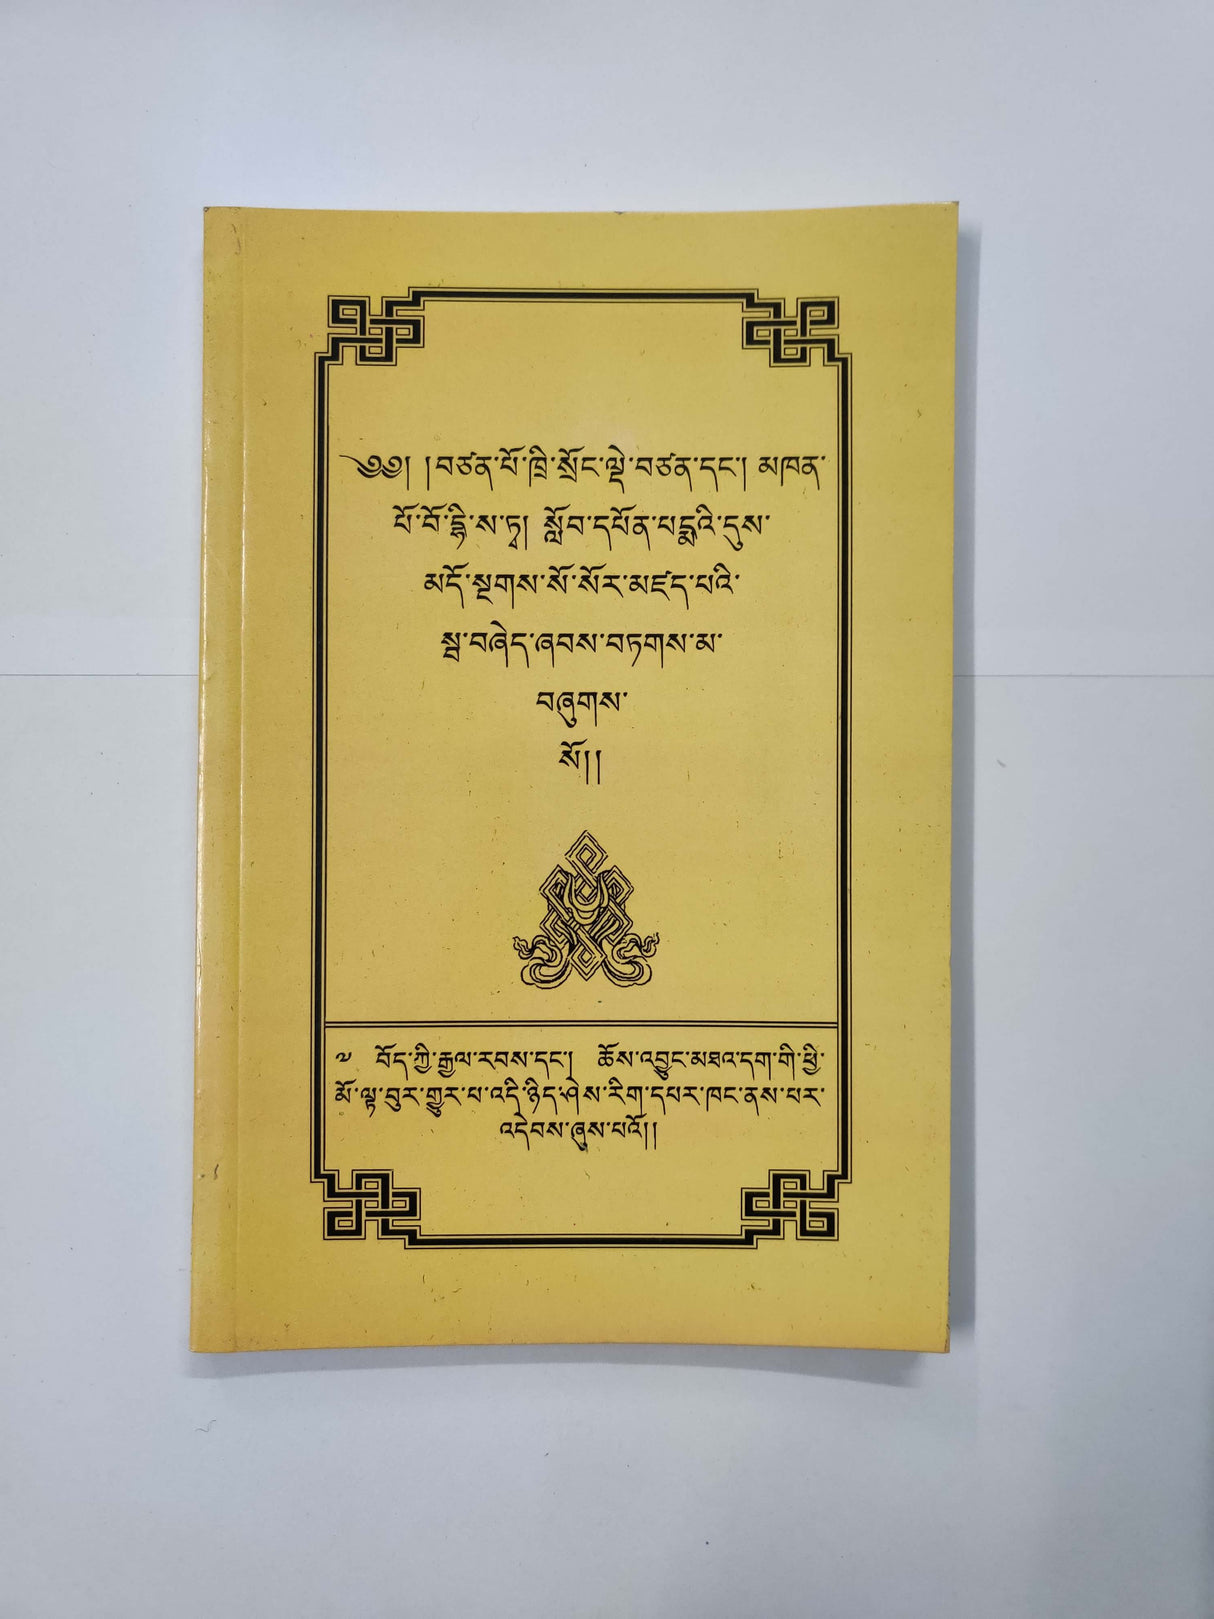 ༄༅། །བཙན་པོ་ཁྲི་སྲོང་ལྡེ་བཙན་དང་། མཁན་
པོ་བོ་དྷི་ས་ཏྭ། སློབ་དཔོན་པདྨའི་དུས་
མདོ་སྔགས་སོ་སོར་མཛད་པའི་
སྦ་བཞེད་ཞབས་བཏགས་མ་
བཞུགས་
སོ།།
༧ བོད་ཀྱི་རྒྱལ་རབས་དང་། ཆོས་འབྱུང་མཐའ་དག་གི་ཕྱི་
མོ་ལྟ་བུར་གྱུར་པ་འདི་ཉིད་ཤེས་རིག་དཔར་ཁང་ནས་པར་
འདེབས་ཞུས་པའོ།།